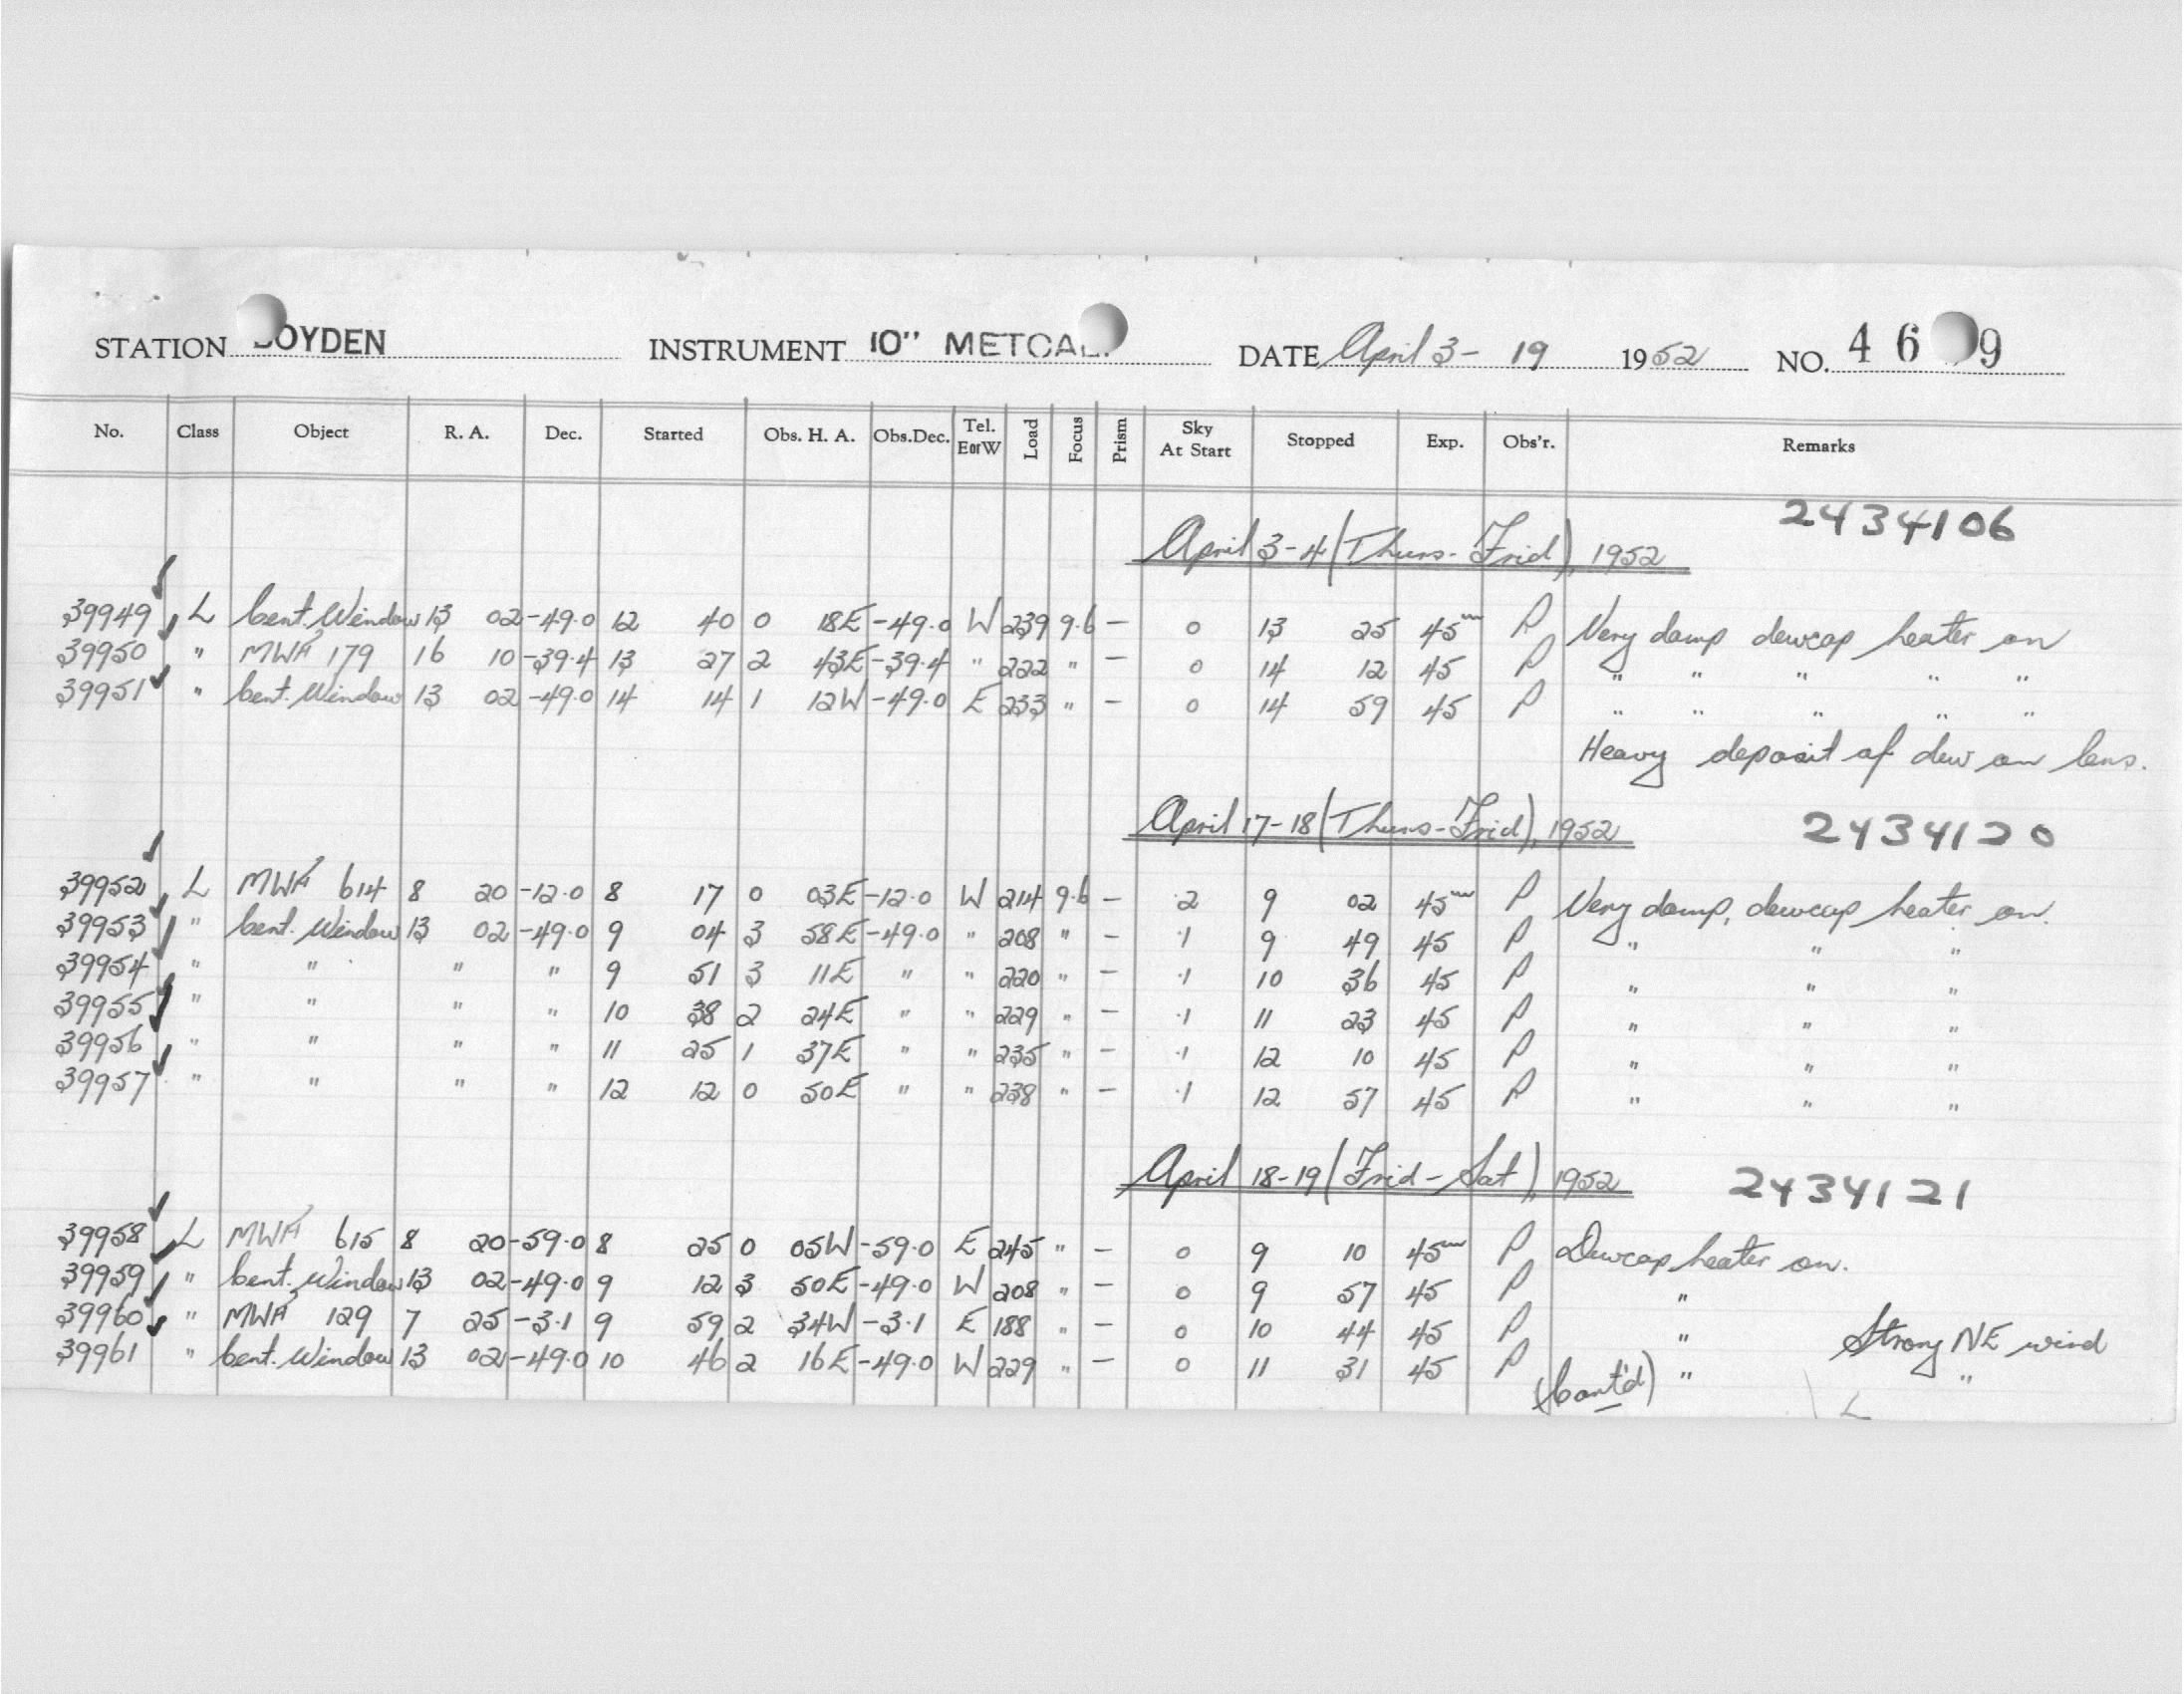 STATION OYDEN INSTRUMENT 10" METCAL DATE April 3 - 19 1952 NO. 4 6 9
No. Class Object R. A. Dec. Started Obs. H. A. Obs.Dec. Tel. EorW Load Focus Prism Sky At Start Stopped Exp. Obs'r. Remarks
April 3-4 (Thurs-Frid), 1952 2434106
39949 L Cent. Window 13 02 -49.0 12 40 0 18E -49.0 W 239 9.6 - 0 13 25 45m P Very damp dewcap heater on
39950 " MWF 179 16 10 -39.4 13 27 2 43E -39.4 " 222 " - 0 14 12 45 P " " " " "
39951 " Cent. Window 13 02 -49.0 14 14 1 12W -49.0 E 233 " - 0 14 59 45 P " " " " "
Heavy deposit of dew on lens.
April 17-18 (Thurs-Frid), 1952 2434120
39952 L MWF 614 8 20 -12.0 8 17 0 03E -12.0 W 214 9.6 - .2 9 02 45m P Very damp, dewcap heater on.
39953 " Cent. Window 13 02 -49.0 9 04 3 58E -49.0 " 208 " - .1 9 49 45 P " " "
39954 " " " " 9 51 3 11E " " 220 " - .1 10 36 45 P " " "
39955 " " " " 10 38 2 24E " " 229 " - .1 11 23 45 P " " "
39956 " " " " 11 25 1 37E " " 235 " - .1 12 10 45 P " " "
39957 " " " " 12 12 0 50E " " 238 " - .1 12 57 45 P " " "
April 18-19 (Frid-Sat), 1952 2434121
39958 L MWF 615 8 20 -59.0 8 25 0 05W -59.0 E 245 " - 0 9 10 45m P Dewcap heater on.
39959 " Cent. Window 13 02 -49.0 9 12 3 50E -49.0 W 208 " - 0 9 57 45 P "
39960 " MWF 129 7 25 -3.1 9 59 2 34W -3.1 E 188 " - 0 10 44 45 P " Strong NE wind
39961 " Cent. Window 13 02 -49.0 10 46 2 16E -49.0 W 229 " - 0 11 31 45 P " "
(Cont'd)